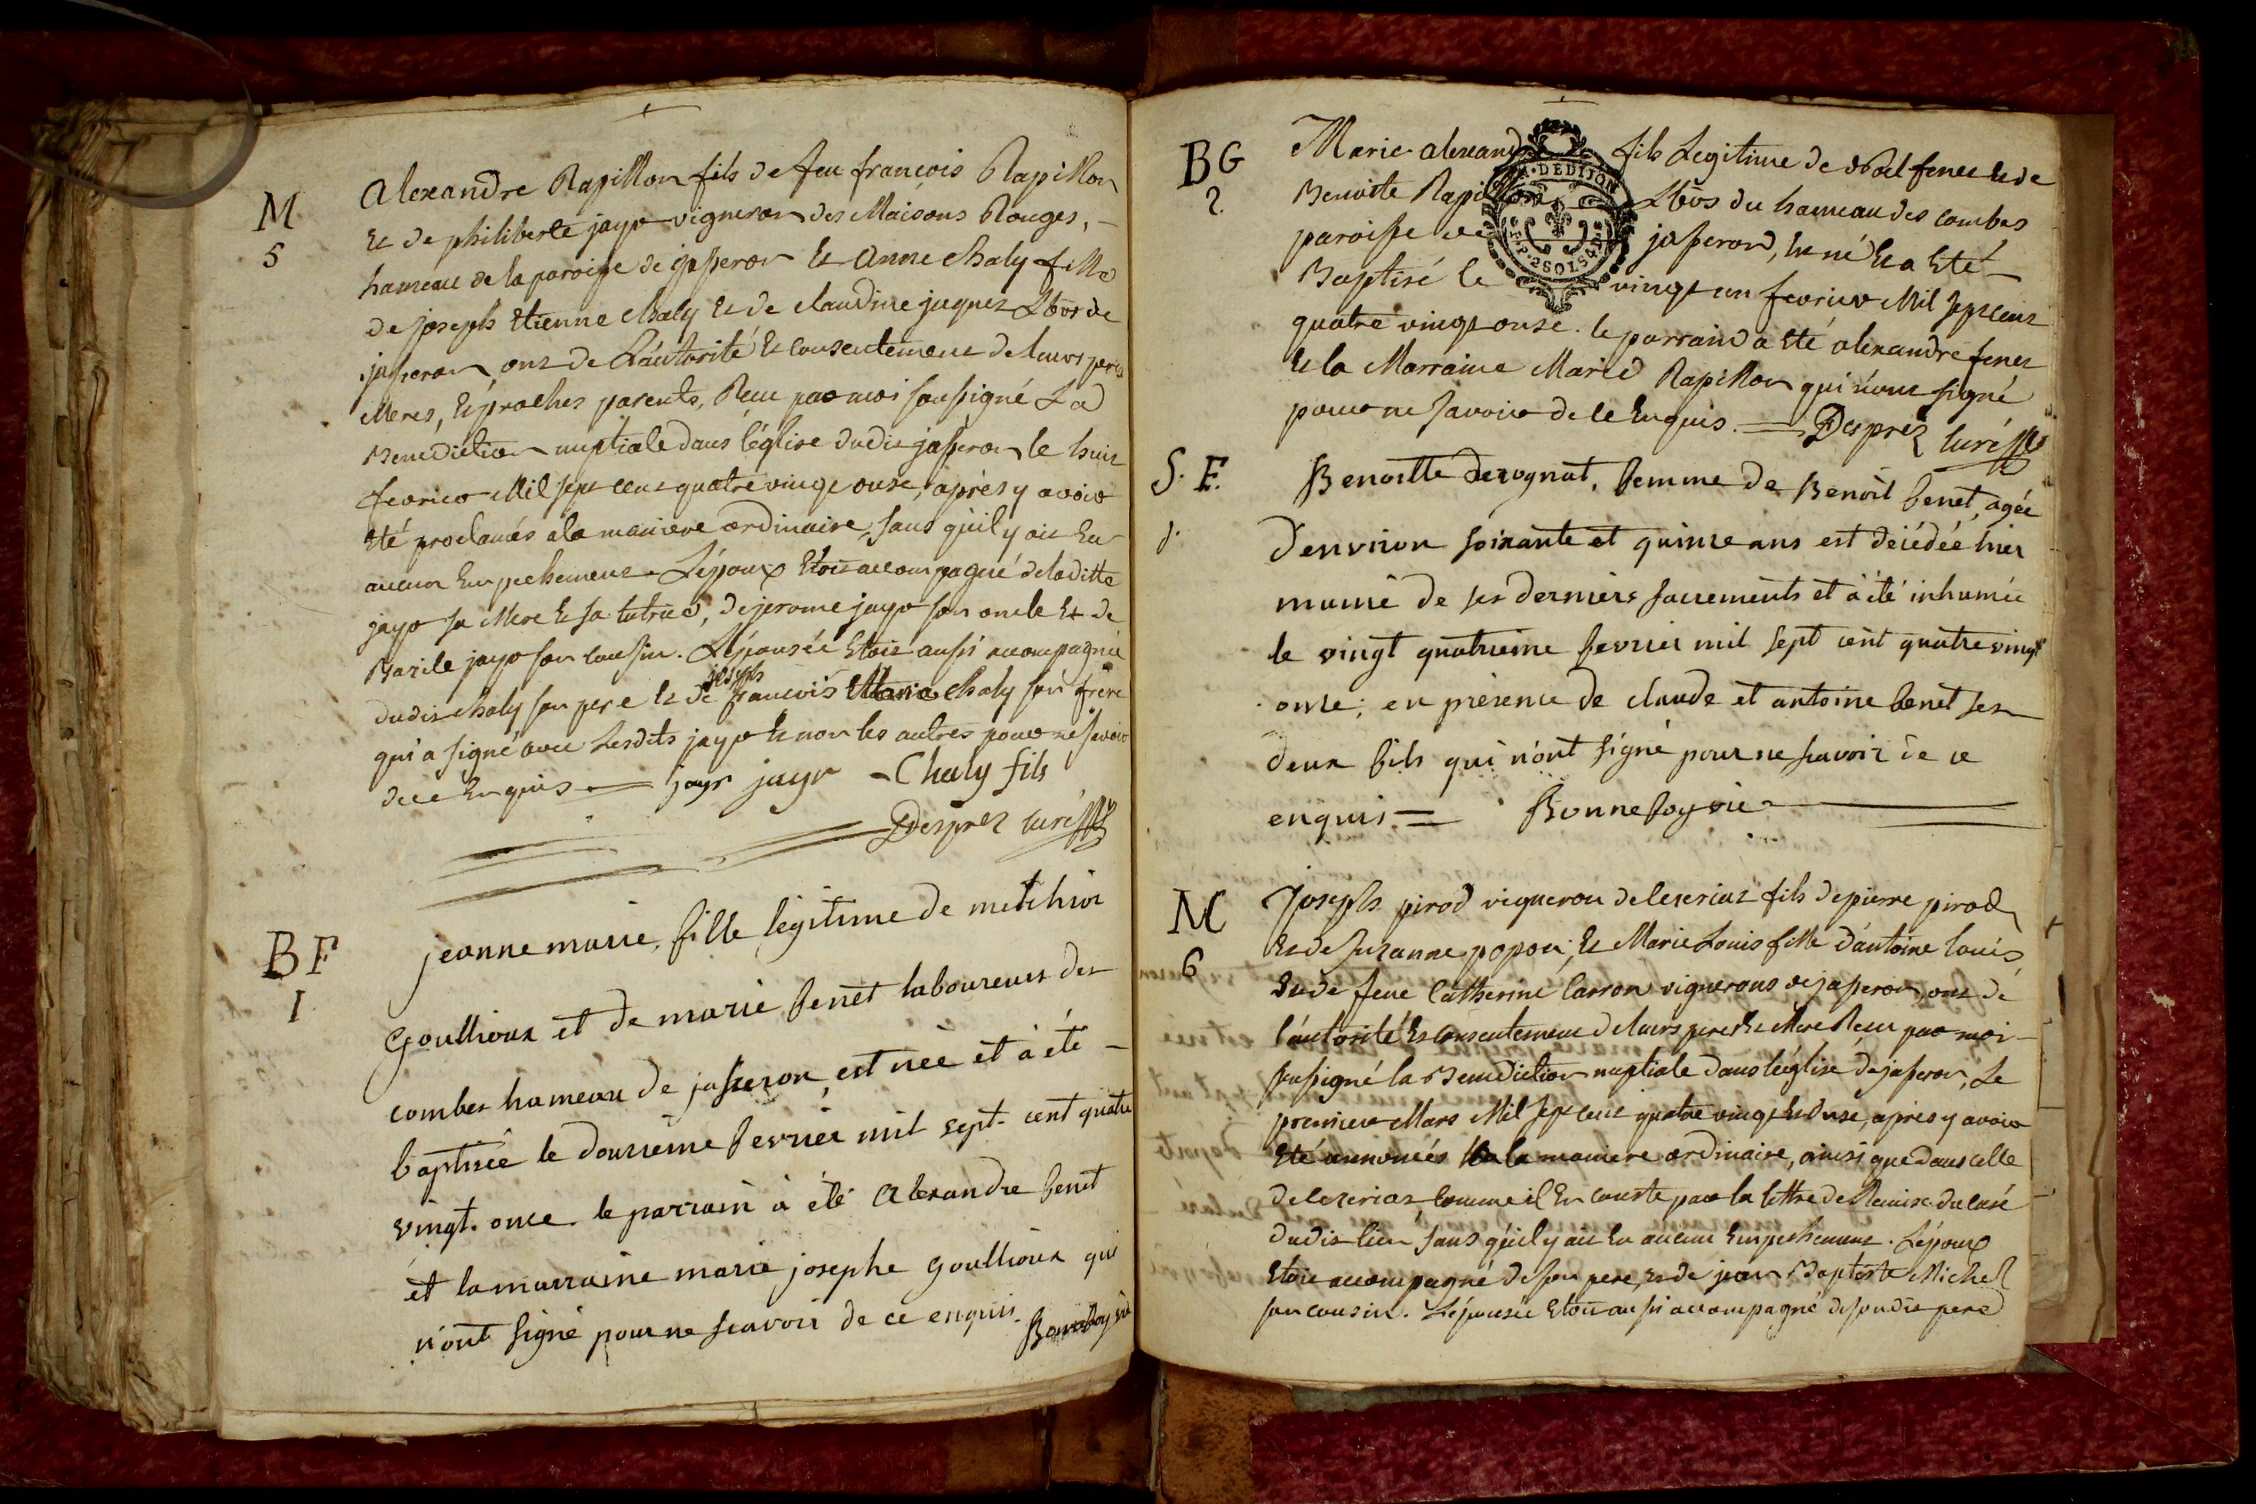 M
5
Alexandre Rapillon fils de feu françois Rapillon
et de philiberte jayr vigneron des Maisons Rouges,
hameau de la paroisse de jasseron et Anne Chaly fille
de joseph Etienne Chaly et de claudine jaquet Lbrs de
jasseron, ont de L'autorité et consentement de leurs peres
Meres, et proches parents, Reçu par moi soussigné La
Benediction nuptiale dans l'église dudit jasseron le huit
fevrier Mil sept cent quatre vingt onse, après y avoir
Eté proclamés a la maniere ordinaire, sans qu'il y ait Eu
aucun Empechement. L'époux Etoit accompagné de laditte
jayr sa Mere et sa tutrice, de jerome jayr son oncle Et de
Bazile jayr son cousin. L'épousée Etoit aussi accompagnée
joseph
dudit chaly son pere et de françois Marie Chaly son frere
qui a signé avec Lesdits jayr et non les autres pour ne savoir
de ce Enquis = jayr jayr - Chaly fils
Desprez curé
BF
1
jeanne marie, fille légitime de melchior
Goullioux et de marie fenet laboureurs des
combes hameau de jasseron, est née et à été
baptisée le douzieme fevrier mil sept cent quatre
vingt. onze. le parrain à été Alexandre fenet
et la marraine marie josephe Goullioux qui
n'ont signé pour ne scavoir de ce enquis. Bonnefoy vic
BG
2
Marie-alexandre fils Legitime de fenet et de
Benoite Rapillon Lbrs du hameau des combes
paroisse de jasseron, est né et a Eté
Baptisé le vingt un fevrier Mil sept cent
quatre vingt onse. le parrain a Eté alexandre fenet
et la Marraine Marie Rapillon qui n'ont signé
pour ne savoir de ce Enquis. = Desprez curé
DE DIJON
2 SOLS
S. F.
1.
Benoitte derognat, femme de Benoit benet, agée
d'environ soixante et quinze ans est décédée hier
munie de ses derniers sacrements et à été inhumée
le vingt quatrieme fevrier mil sept cent quatre vingt
onze; en présence de claude et antoine benet ses
deux fils qui n'ont signé pour ne scavoir de ce
enquis. = Bonnefoy vic
M
6
Joseph pirod vigneron de fils de pierre pirod
et de Suzanne popon; Et Marie Louis fille d'antoine louis
Et de feue Catherine Carron vignerons de jasseron, ont de
l'autorité Et consentement de leurs peres Et Mere Reçu par moi
soussigné la Benediction nuptiale dans l'église de jasseron, Le
premier Mars Mil sept cent quatre vingt et onse, après y avoir
Eté annoncés a la maniere ordinaire, ainsi que dans celle
de comme il En conste par la lettre de Remise du curé
dudit lieu sans qu'il y ait Eu aucun Empechement. L'époux
Etoit accompagné de son pere, et de jean Baptiste Michel
son cousin. L'épousée Etoit aussi accompagnée de sondit pere